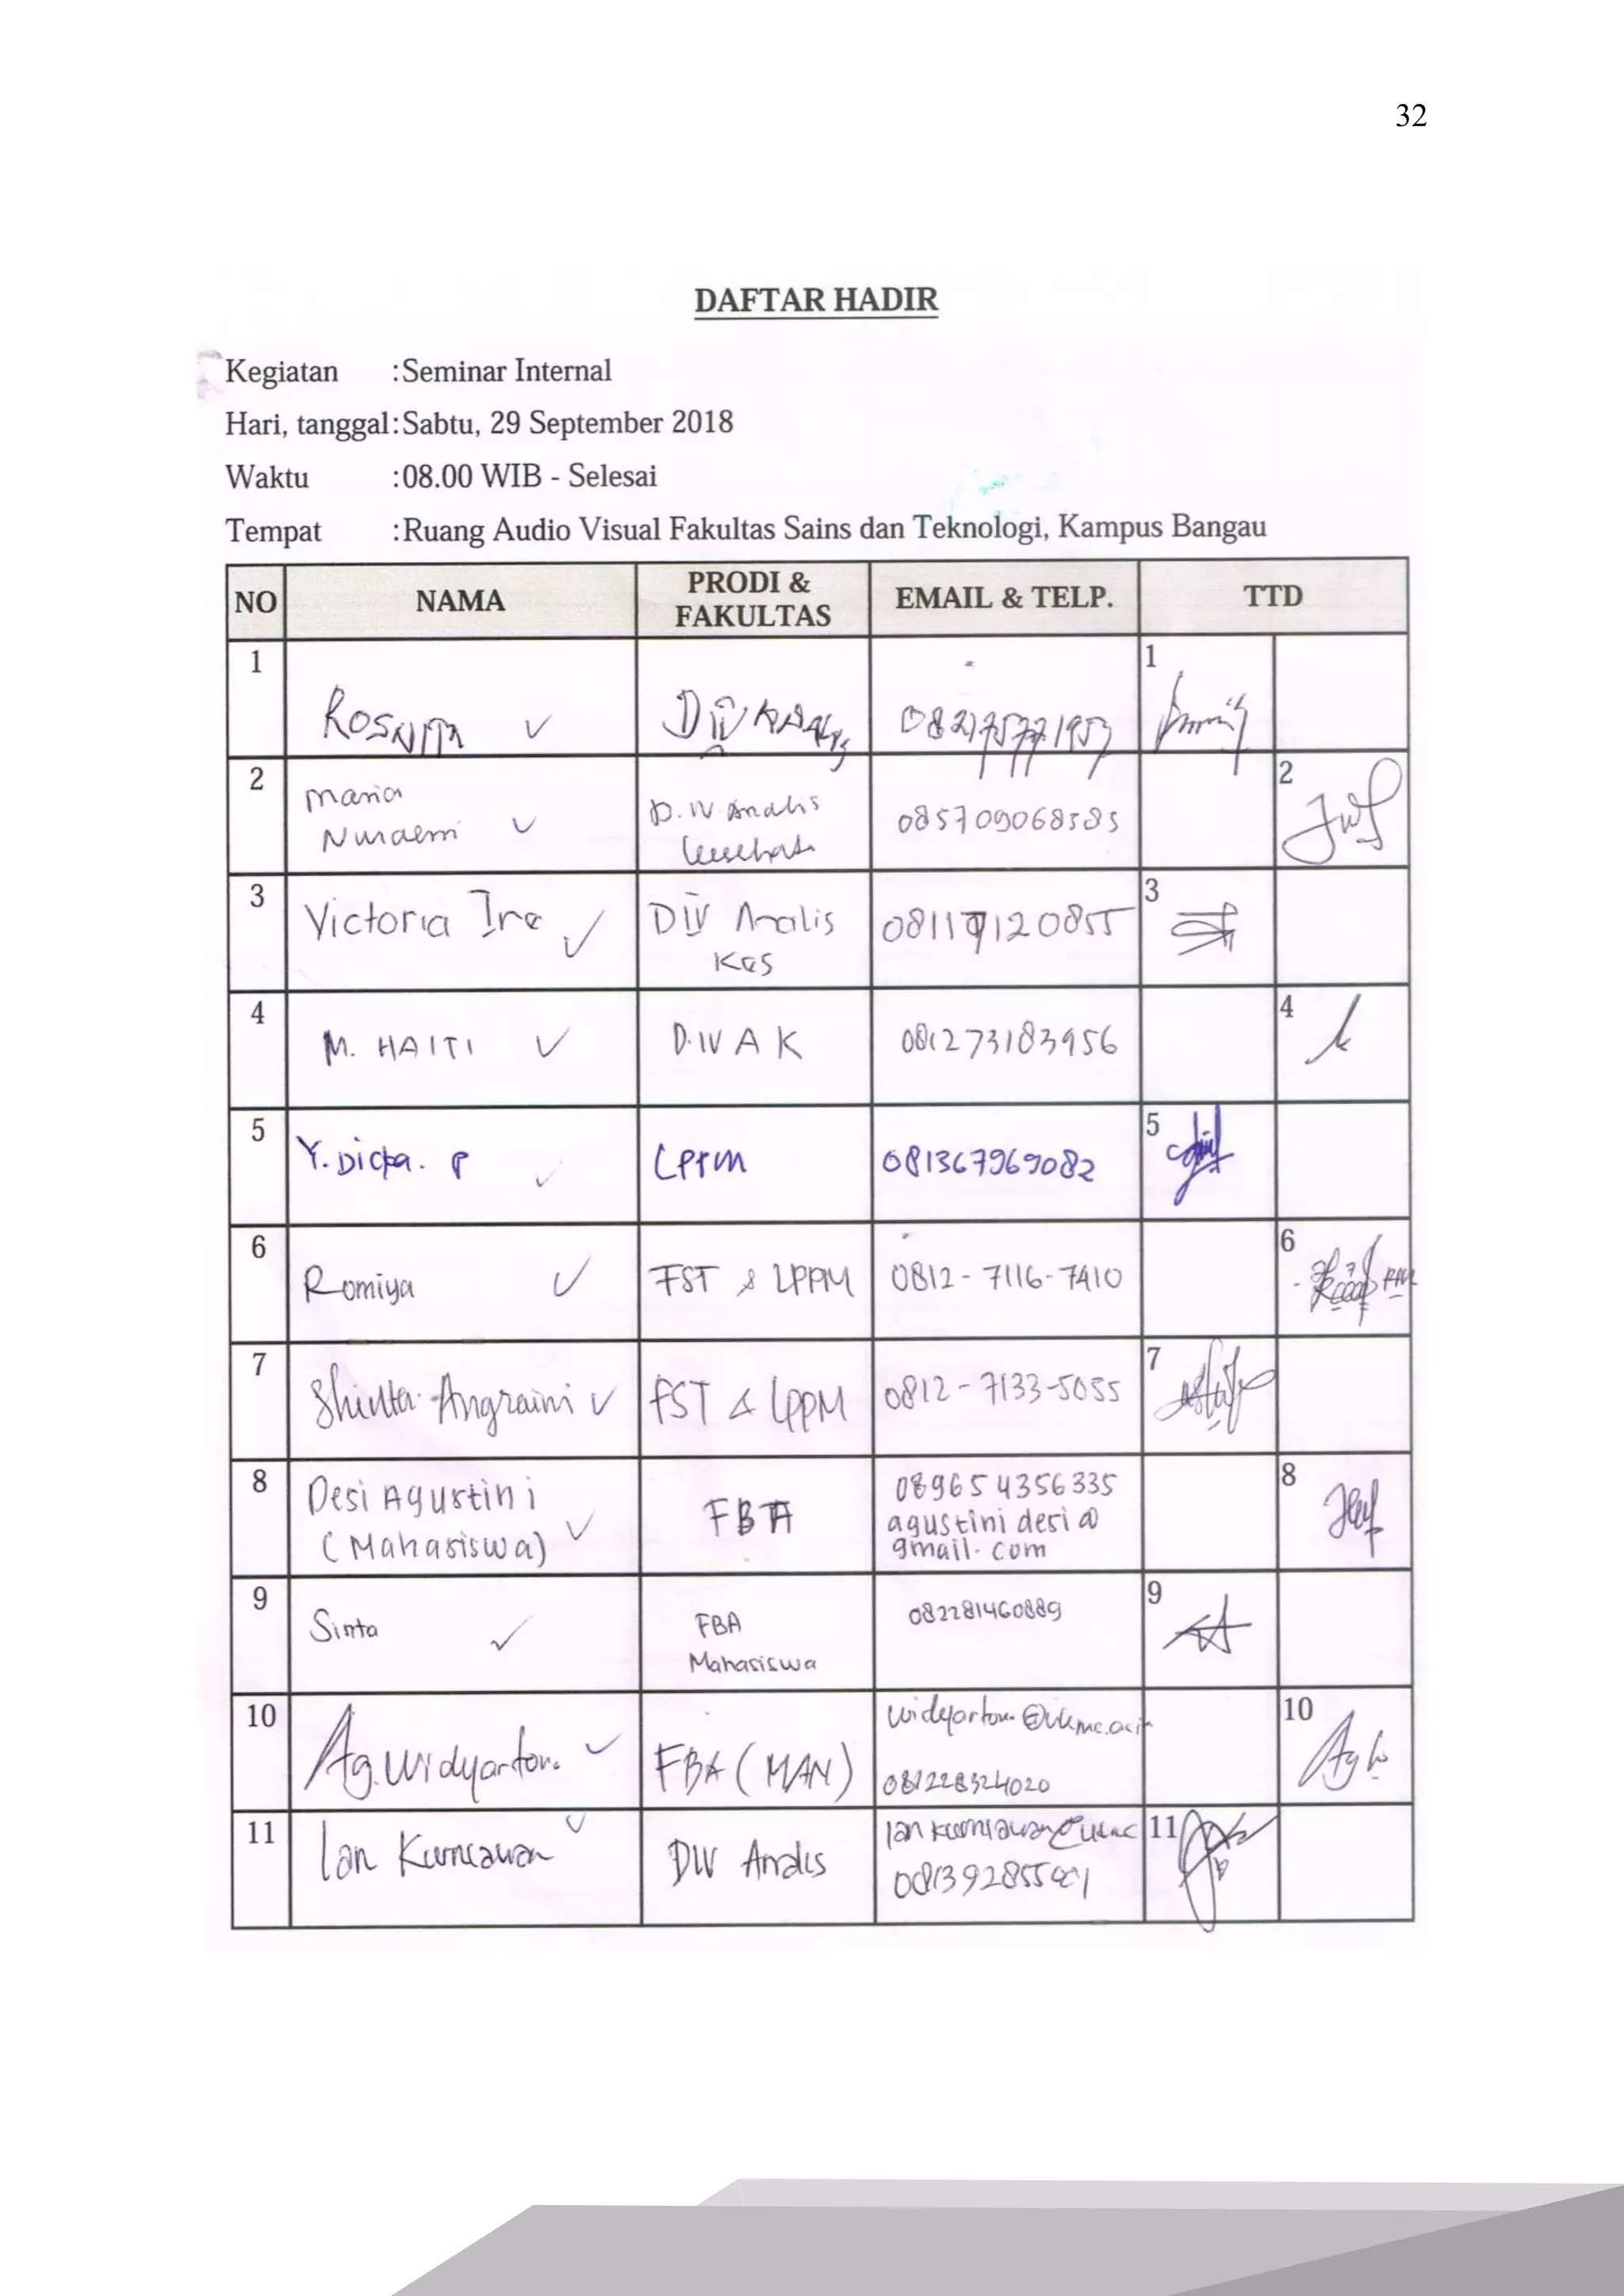 32
DAFTAR HADIR
Kegiatan :Seminar Internal
Hari, tanggal:Sabtu, 29 September 2018
Waktu :08.00 WIB - Selesai
Tempat :Ruang Audio Visual Fakultas Sains dan Teknologi, Kampus Bangau
NO NAMA PRODI & FAKULTAS EMAIL & TELP. TTD
1 Rosnita DIV 1
2 Maria Nuraeni D.IV Analis 085709068585 2
3 Victoria Ire DIV Analis Kes 3
4 M. HAITI D.IV A K 081273183956 4
5 Y. Dicka. P LPPM 081367969082 5
6 Romiya FST & LPPM 0812-7116-7410 6
7 Shinta Angraini FST & LPPM 0812-7133-5055 7
8 Desi Agustini (Mahasiswa) FBA 089654356335 agustini desi@ gmail.com 8
9 Sinta FBA Mahasiswa 082281460889 9
10 Ag. Widyartono FBA (MAN) 10
11 Ian Kurniawan DIV Analis 11